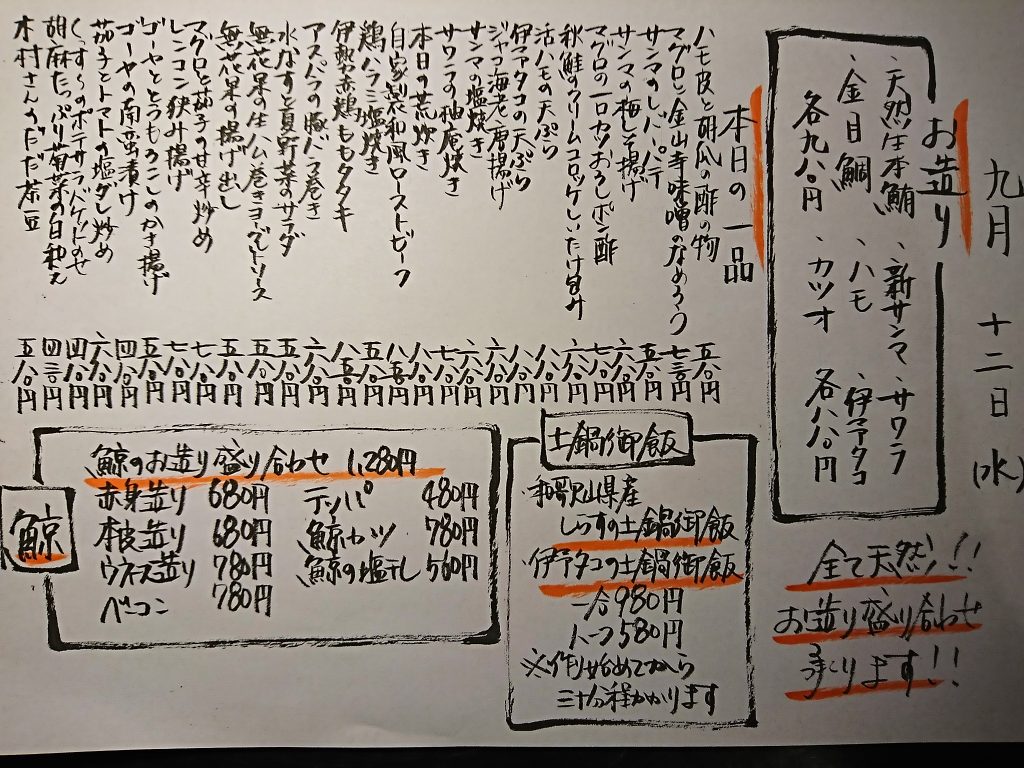 九月 十二日 (水)
お造り
、天然生本鮪 、新サンマ 、サワラ
、金目鯛 、ハモ 、伊予タコ
各九八〇円 、カツオ 各八八〇円
全て天然!!
お造り盛り合わせ
承ります!!
本日の一品
ハモ皮と胡瓜の酢の物 五八〇円
マグロと金山寺味噌のなめろう 七三〇円
サンマのレバーパテ 五八〇円
サンマの梅しそ揚げ 六八〇円
マグロの一口カツおろしポン酢 七八〇円
秋鮭のクリームコロッケしいたけ包み 六八〇円
活ハモの天ぷら 八八〇円
伊予タコの天ぷら 八八〇円
ジャコ海老の唐揚げ 六八〇円
サンマの塩焼き 六八〇円
サワラの柚庵焼き 七八〇円
本日の荒炊き 八八〇円
自家製和風ローストビーフ 八八〇円
鶏ハラミ塩焼き 五八〇円
伊勢赤鶏ももタタキ 八五〇円
アスパラの豚バラ巻き 六八〇円
水なすと夏野菜のサラダ 五八〇円
無花果の生ハム巻きヨーグルトソース 五八〇円
無花果の揚げ出し 五八〇円
マグロと茄子の甘辛炒め 七八〇円
レンコン挟み揚げ 七八〇円
ゴーヤととうもろこしのかき揚げ 五八〇円
ゴーヤの南蛮漬け 四八〇円
茄子とトマトの塩ダレ炒め 六八〇円
くんすーのポテサラバケットのせ 四八〇円
胡麻たっぷり菊菜の白和え 四三〇円
木村さんのだだ茶豆 五八〇円
土鍋御飯
和歌山県産
しらすの土鍋御飯
伊予タコの土鍋御飯
一合980円
ハーフ580円
※作り始めてから
三十分程かかります
鯨
鯨のお造り盛り合わせ 1,280円
赤身造り 680円 テッパ 480円
本皮造り 680円 鯨カツ 780円
ウネス造り 780円 鯨の塩干し 560円
ベーコン 780円